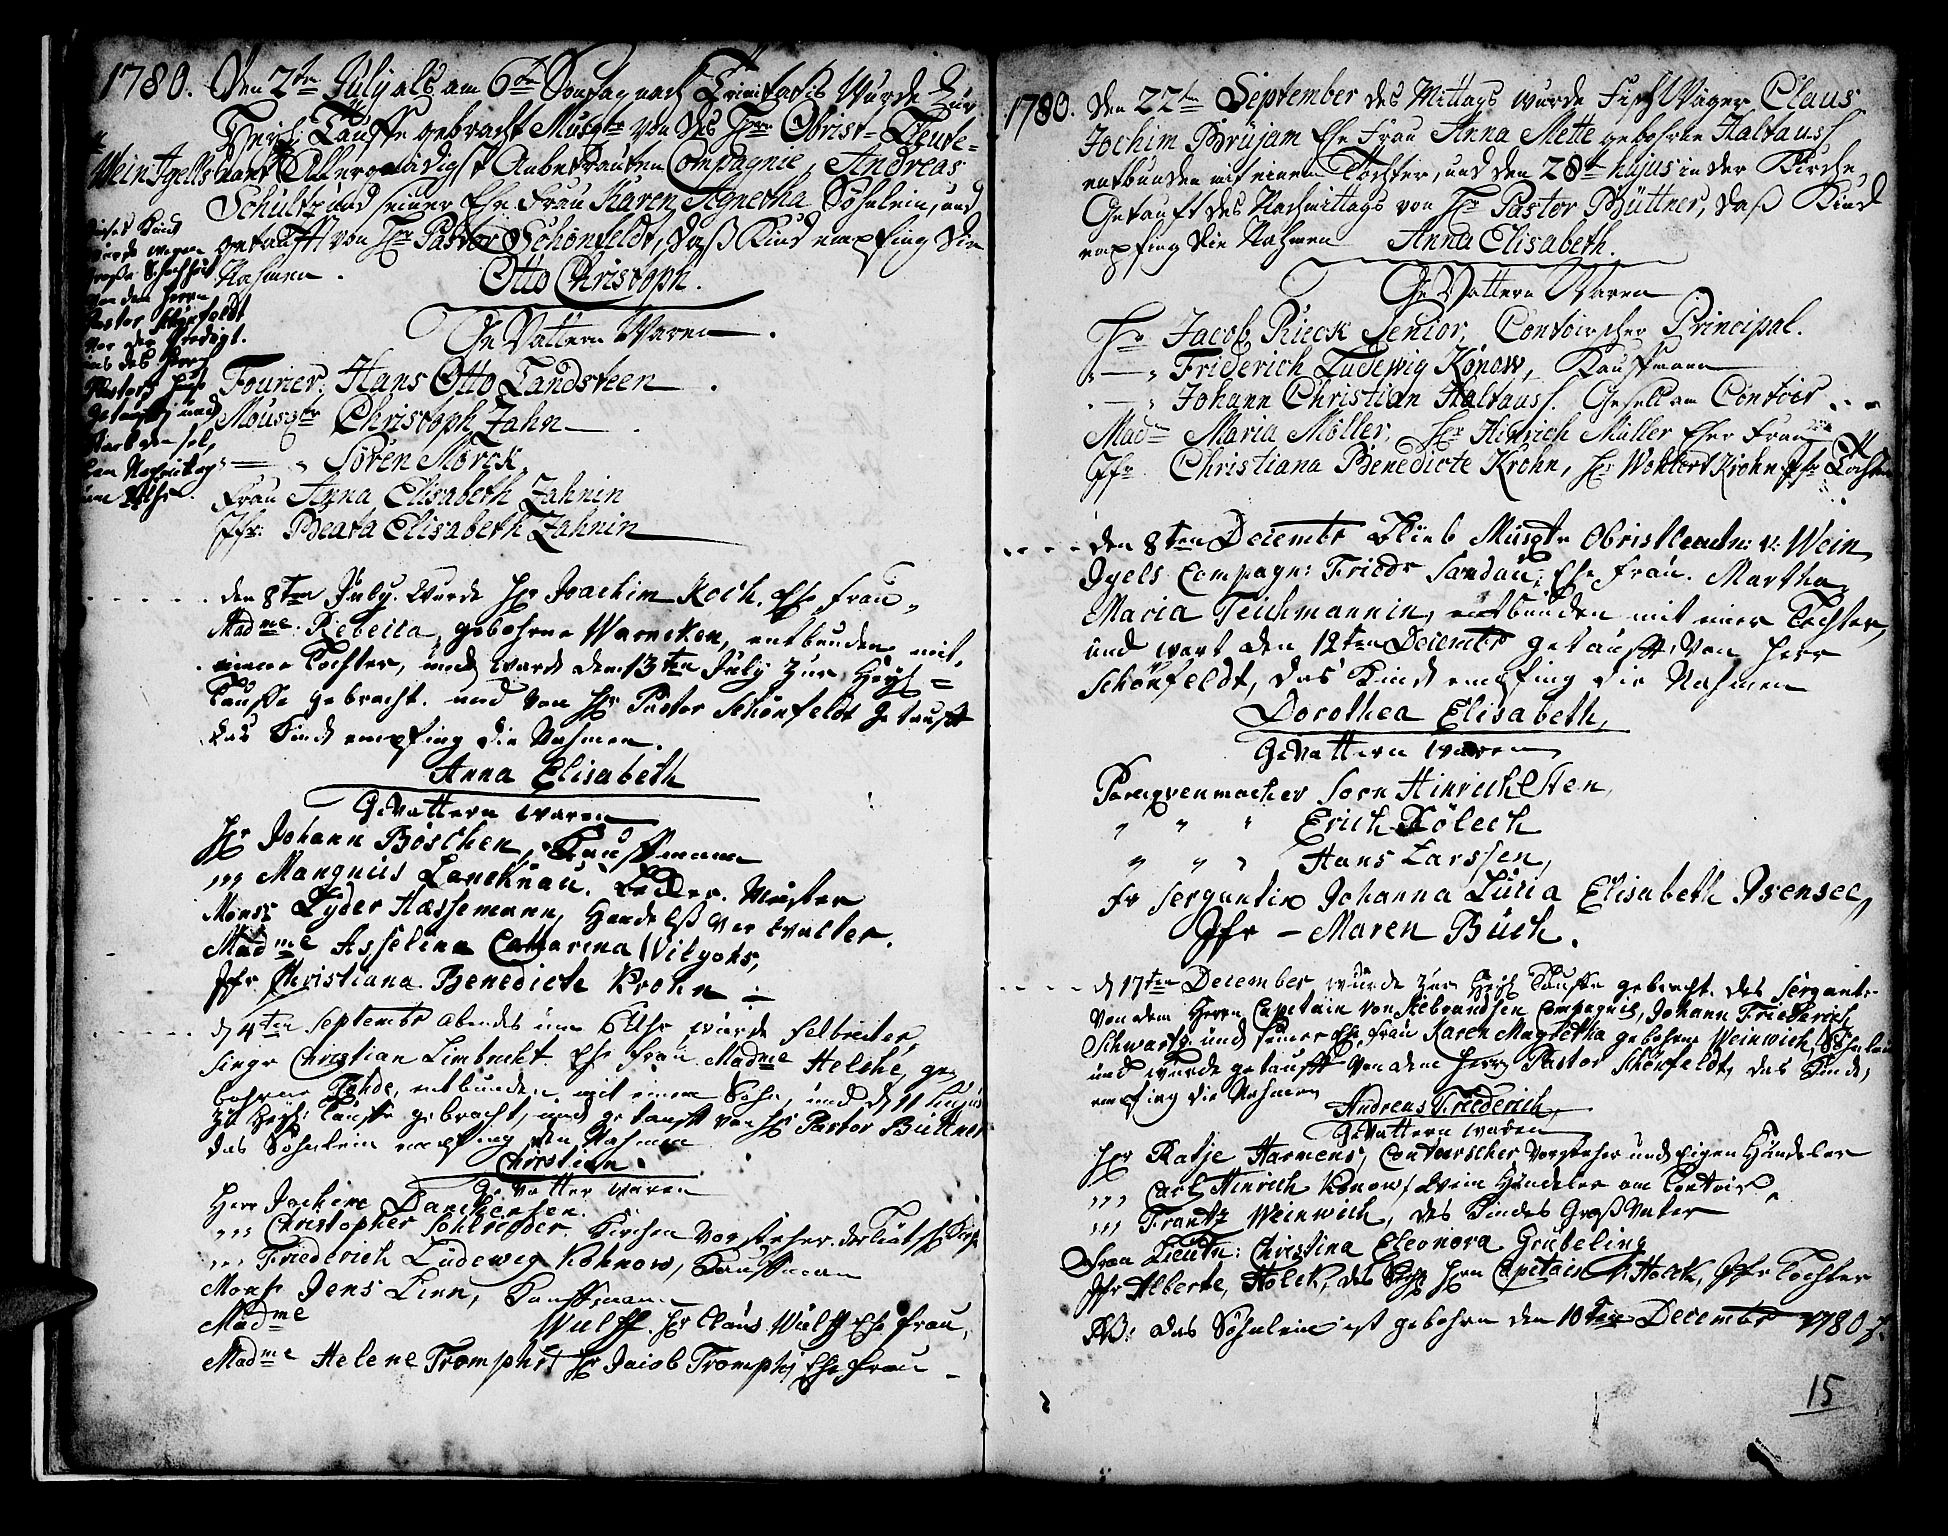 1780. Den 2ten July als am 6ten Sontag nach Trinitatis Wurde Zur
Heyl: Tauffe gebracht Musqtr von des Hrn Obrist-Leute-
nant Allergnädigst Anbetrauten Compagnie, Andreas
Schultz und seiner Ehe Frau Karen Agnetha Söhnlein, und
getaufft von Hr Pastor Schönfeldt, daß Kind empfing die
Nahmen.
Otto Christoph.
GeVattern Waren
v WeinIgells
dieses Kind
wurde wegen
große Schwachheit
von dem Herrn
Pastor Schönfeldt
vor der Predigt.
in des Herrn
Pastors Hause
getaufft und
starb den sel,
ben Nachmittag
um Uhr.
Fourier. Hans Otto Landsteen
Mousqtr Christoph Zahn
— " Sören Mörck
Frau Anna Elisabeth Zahnin
Jfr: Beata Elisabeth Zahnin
den 8ten July. Wurde Hr Joachim Koch. Ehe Frau,
Madme. Rebecca, gebohrne Warneken, entbunden mit,
einer Tochter, und ward den 13ten July zur Heyl=
Tauffe gebracht. und von Hr Pastor Schönfeldt getaufft
das Kind empfing die Nahmen.
Anna Elisabeth
Gevattern waren
Hr Johann Böschen, Kauffmann
,,, Mangnus Laneknau. Meister
Monsr Lyder Hassemann, Handelß verwalter.
Madme Asselina Catharina Wilgohs,
Jfr Christiana Benedicte Krohn
d 4ten Septembr Abendes um 6 Uhr wurde
Christian Limbrecht Ehe Frau Madme Helche, ge,
bohrne Tohde, entbunden mit einem Sohn, und d 11 hujus
zu Heyl: Tauffe gebracht, und getaufft von Hr Pastor Büttner
das Söhnlein empfing den Nahmen
Christian.
Gevatter waren
Herr Jochim Danckersen.
,,, Christopher Sohlredder. Kirchen Vorsteher der Teutsch Kirche
,,, Friederich Ludewig Kohnow, Kauffman
Monsr Jens Linn, Kauffmann
Madme Wulff. Hr Claus Wulff Ehe Frau,
Madme Helene Tromphst Hr Jacob Tromphs Ehe Frau
1780. Den 22ten September des Mittags wurde Fisch Wäger Claus
Jochim Brüjam Ehe Frau Anna Mette gebohrne Haltauss
entbunden mit einem Tochter, und den 28ten hujus in der Kirche
Getauft des Nachmittags von Hr Pastor Büttner, daß Kind
empfing die Nahmen Anna Elisabeth.
GeVattern Waren
Hr Jacob Rieck Senior, Contoirscher Principal.
" — " Friderich Ludewig Konow, Kauffmann
" — " Johann Christian Haltauss. Gesell am Contoir
Mad Maria Möller, Hr Hinrich Müller Ehe Frau
Jfr Christiana Benedicte Krohn, Hr Wohlert Krohn Jfr Tochter
den 8ten Decembr Musqtr Obristleutn: v: Wein
Igels Compagn: Friedr Sandau, Ehe Frau. Martha
Maria Teichmannin, entbunden mit einer Tochter,
und wart den 12ten Decembr getaufft, Von Herr
Schönfeldt, das Kind empfing die Nahmen
Dorothea Elisabeth,
Gevattern waren
Paruqvenmacher Sorn Hinrichsten,
" " " Erich Kölech
" " " Hans Larssen,
Fr Sergantin Johanna Lucia Elisabeth Isensee,
Jfr — Maren Büch.
d 17ten December wurde zur Heyl Tauffe gebracht. des Sergante
von dem Herrn Capetain von Hebrandsen Compagnie, Johann Friederich
Schwartz und seiner Ehe Frau Karen Magretha gebohrne Weinwich, Söhnlein
und wurde getaufft von dem Herrn Pastor Schönfeldt, das Kind,
empfing die Nahmen
Andreas Friederich,
Gevattern waren
Hr Ratje Harmens, Contoirscher Vorsteher und eigen Händeler
,,, Carl Hinrich Konow, Wein Händeler am Contoir.
,,, Frantz Weinwich, des Kindes Groß Vater
Frau Lieutn: Christina Eleonora Grubeling
Jfr Alberte, Holck, des Hrn Capetain v: Holck, Jfr Tochter
NB: das Söhnlein ist gebohrn den 10ten Decembr 1780
15